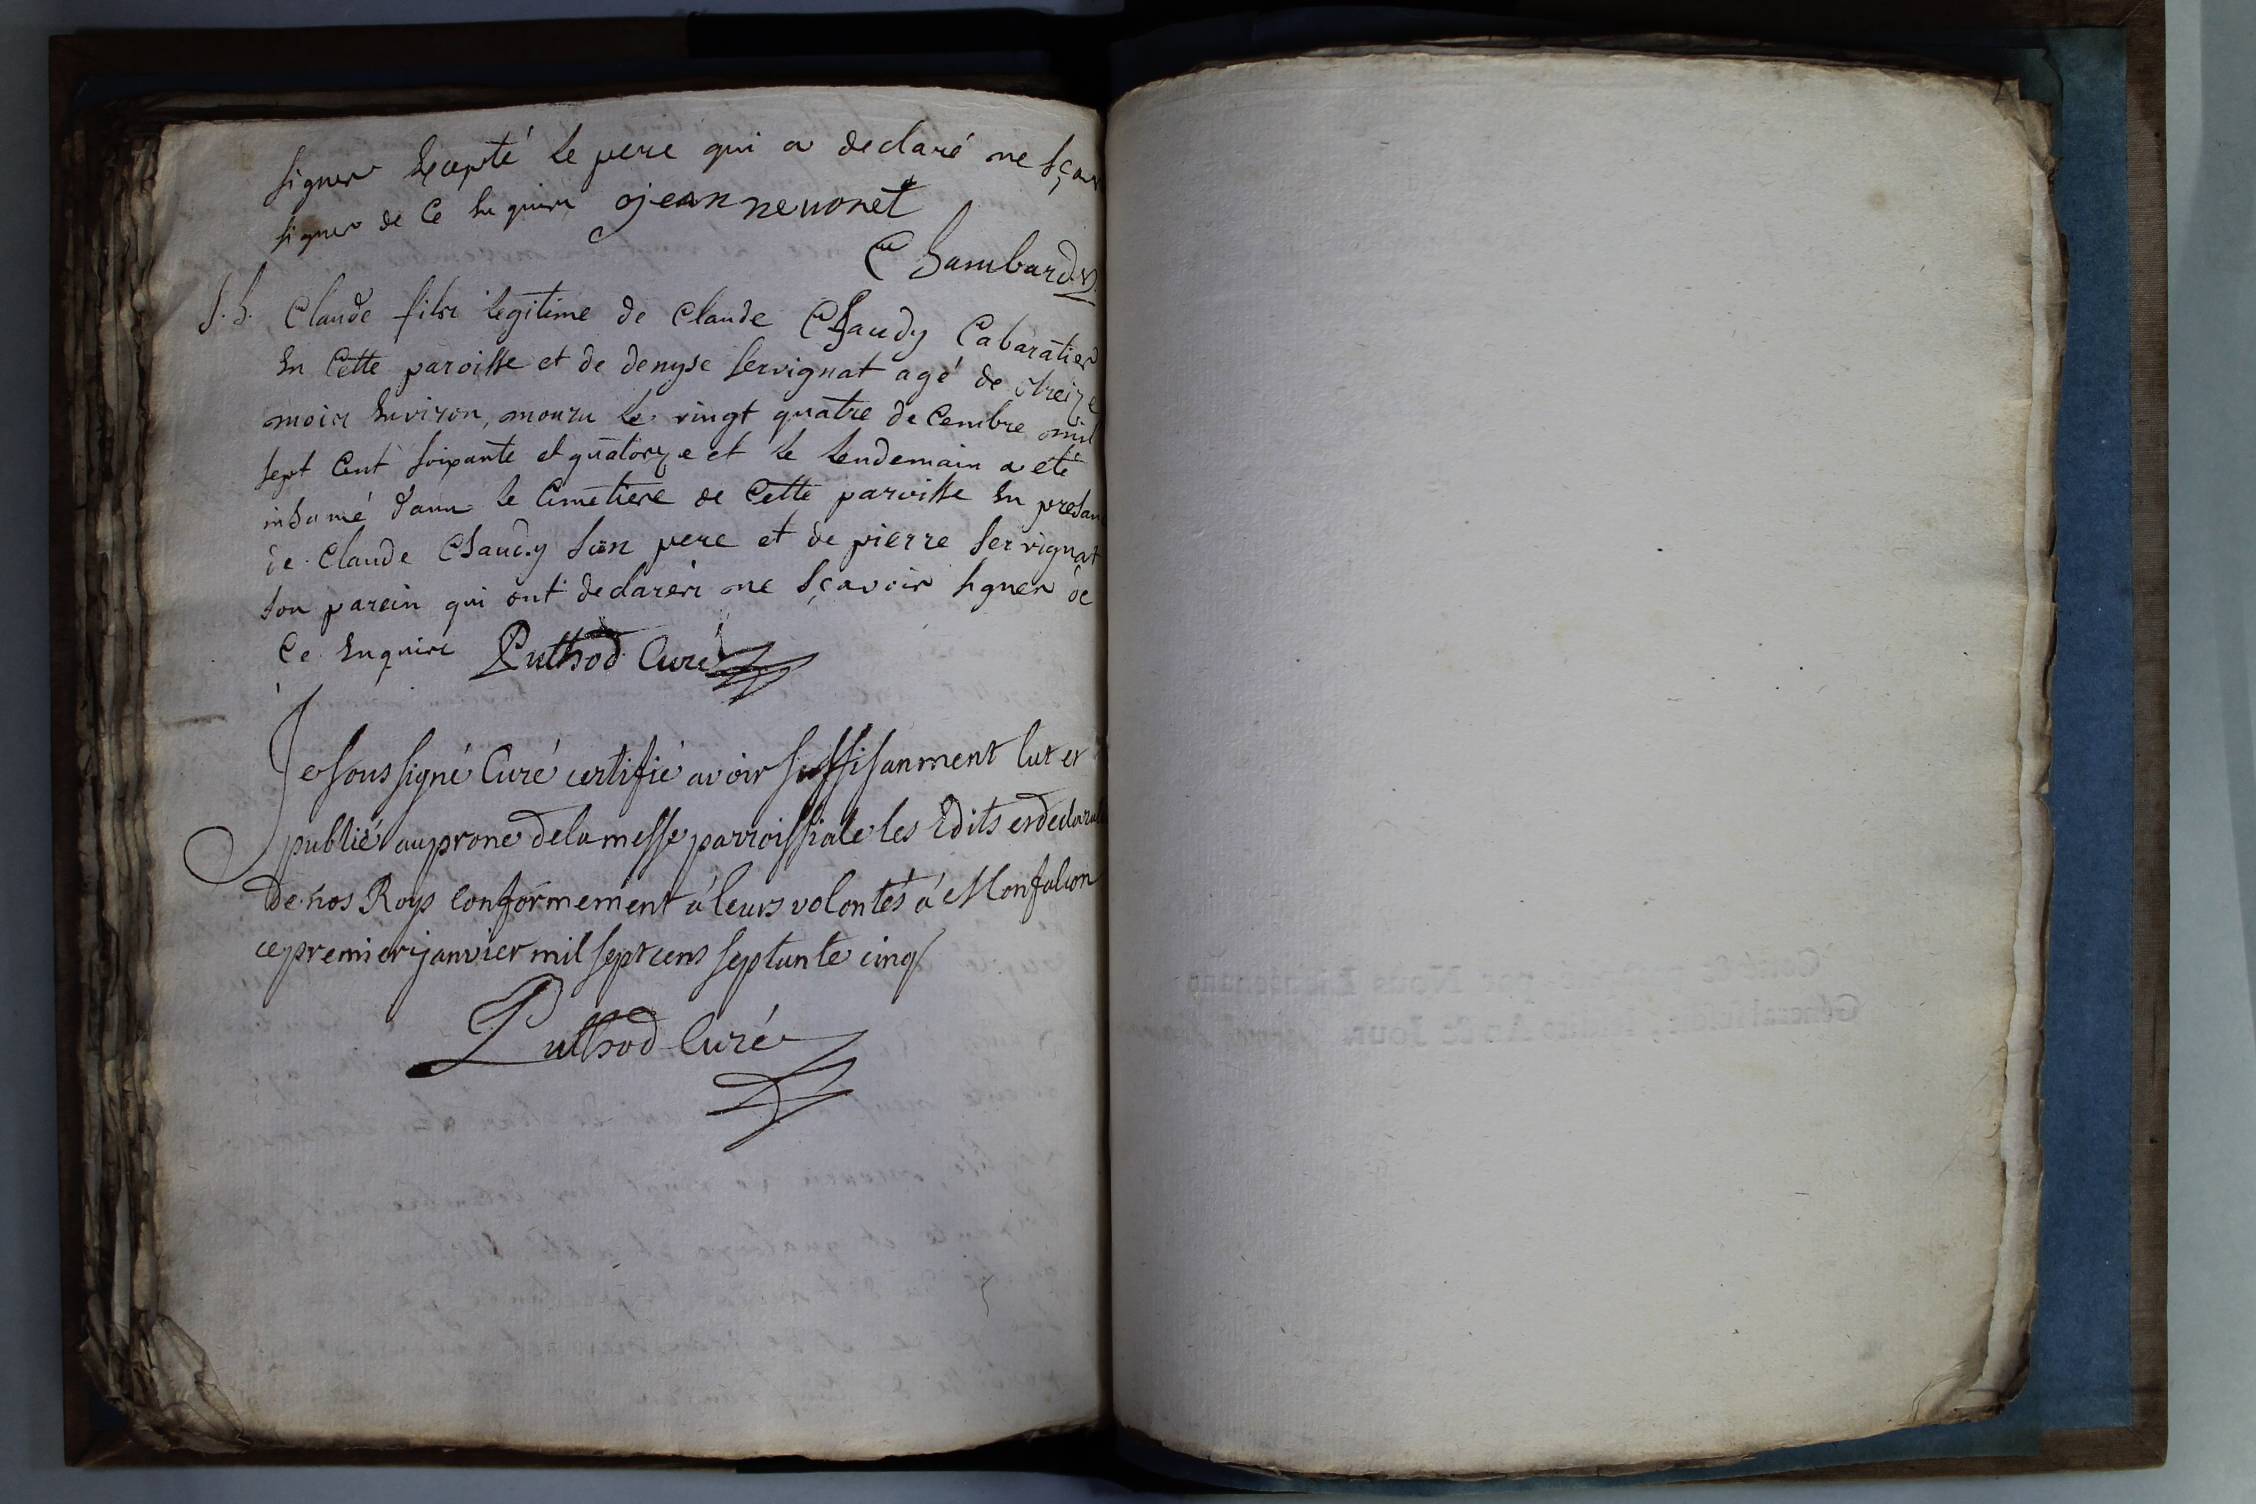 signer Excepté le pere qui a declaré ne sçavoir
signer de ce Enquire jean nevoret
Chambard. v.
S. h. Claude fils legitime de Claude Chaudy Cabaratier
En Cette paroisse et de denyse servignat agé de treize
mois Environ, mouru le vingt quatre decembre mil
sept Cent soixante et quatorze et le lendemain a eté
inhumé dans le Cimetiere de Cette paroisse En presance
de Claude Chaudy son pere et de pierre servignat
son parein qui ont declarér ne sçavoir signer de
Ce Enquire Puthod Curé
Je sous signé Curé certifié avoir suffisanment lut et
publié au prone de la messe parroissiale les Edits et declarat
de nos Roys conformement à leurs volontés à Monfalcon
ce premier janvier mil sept cens septante cinq
Puthod Curé